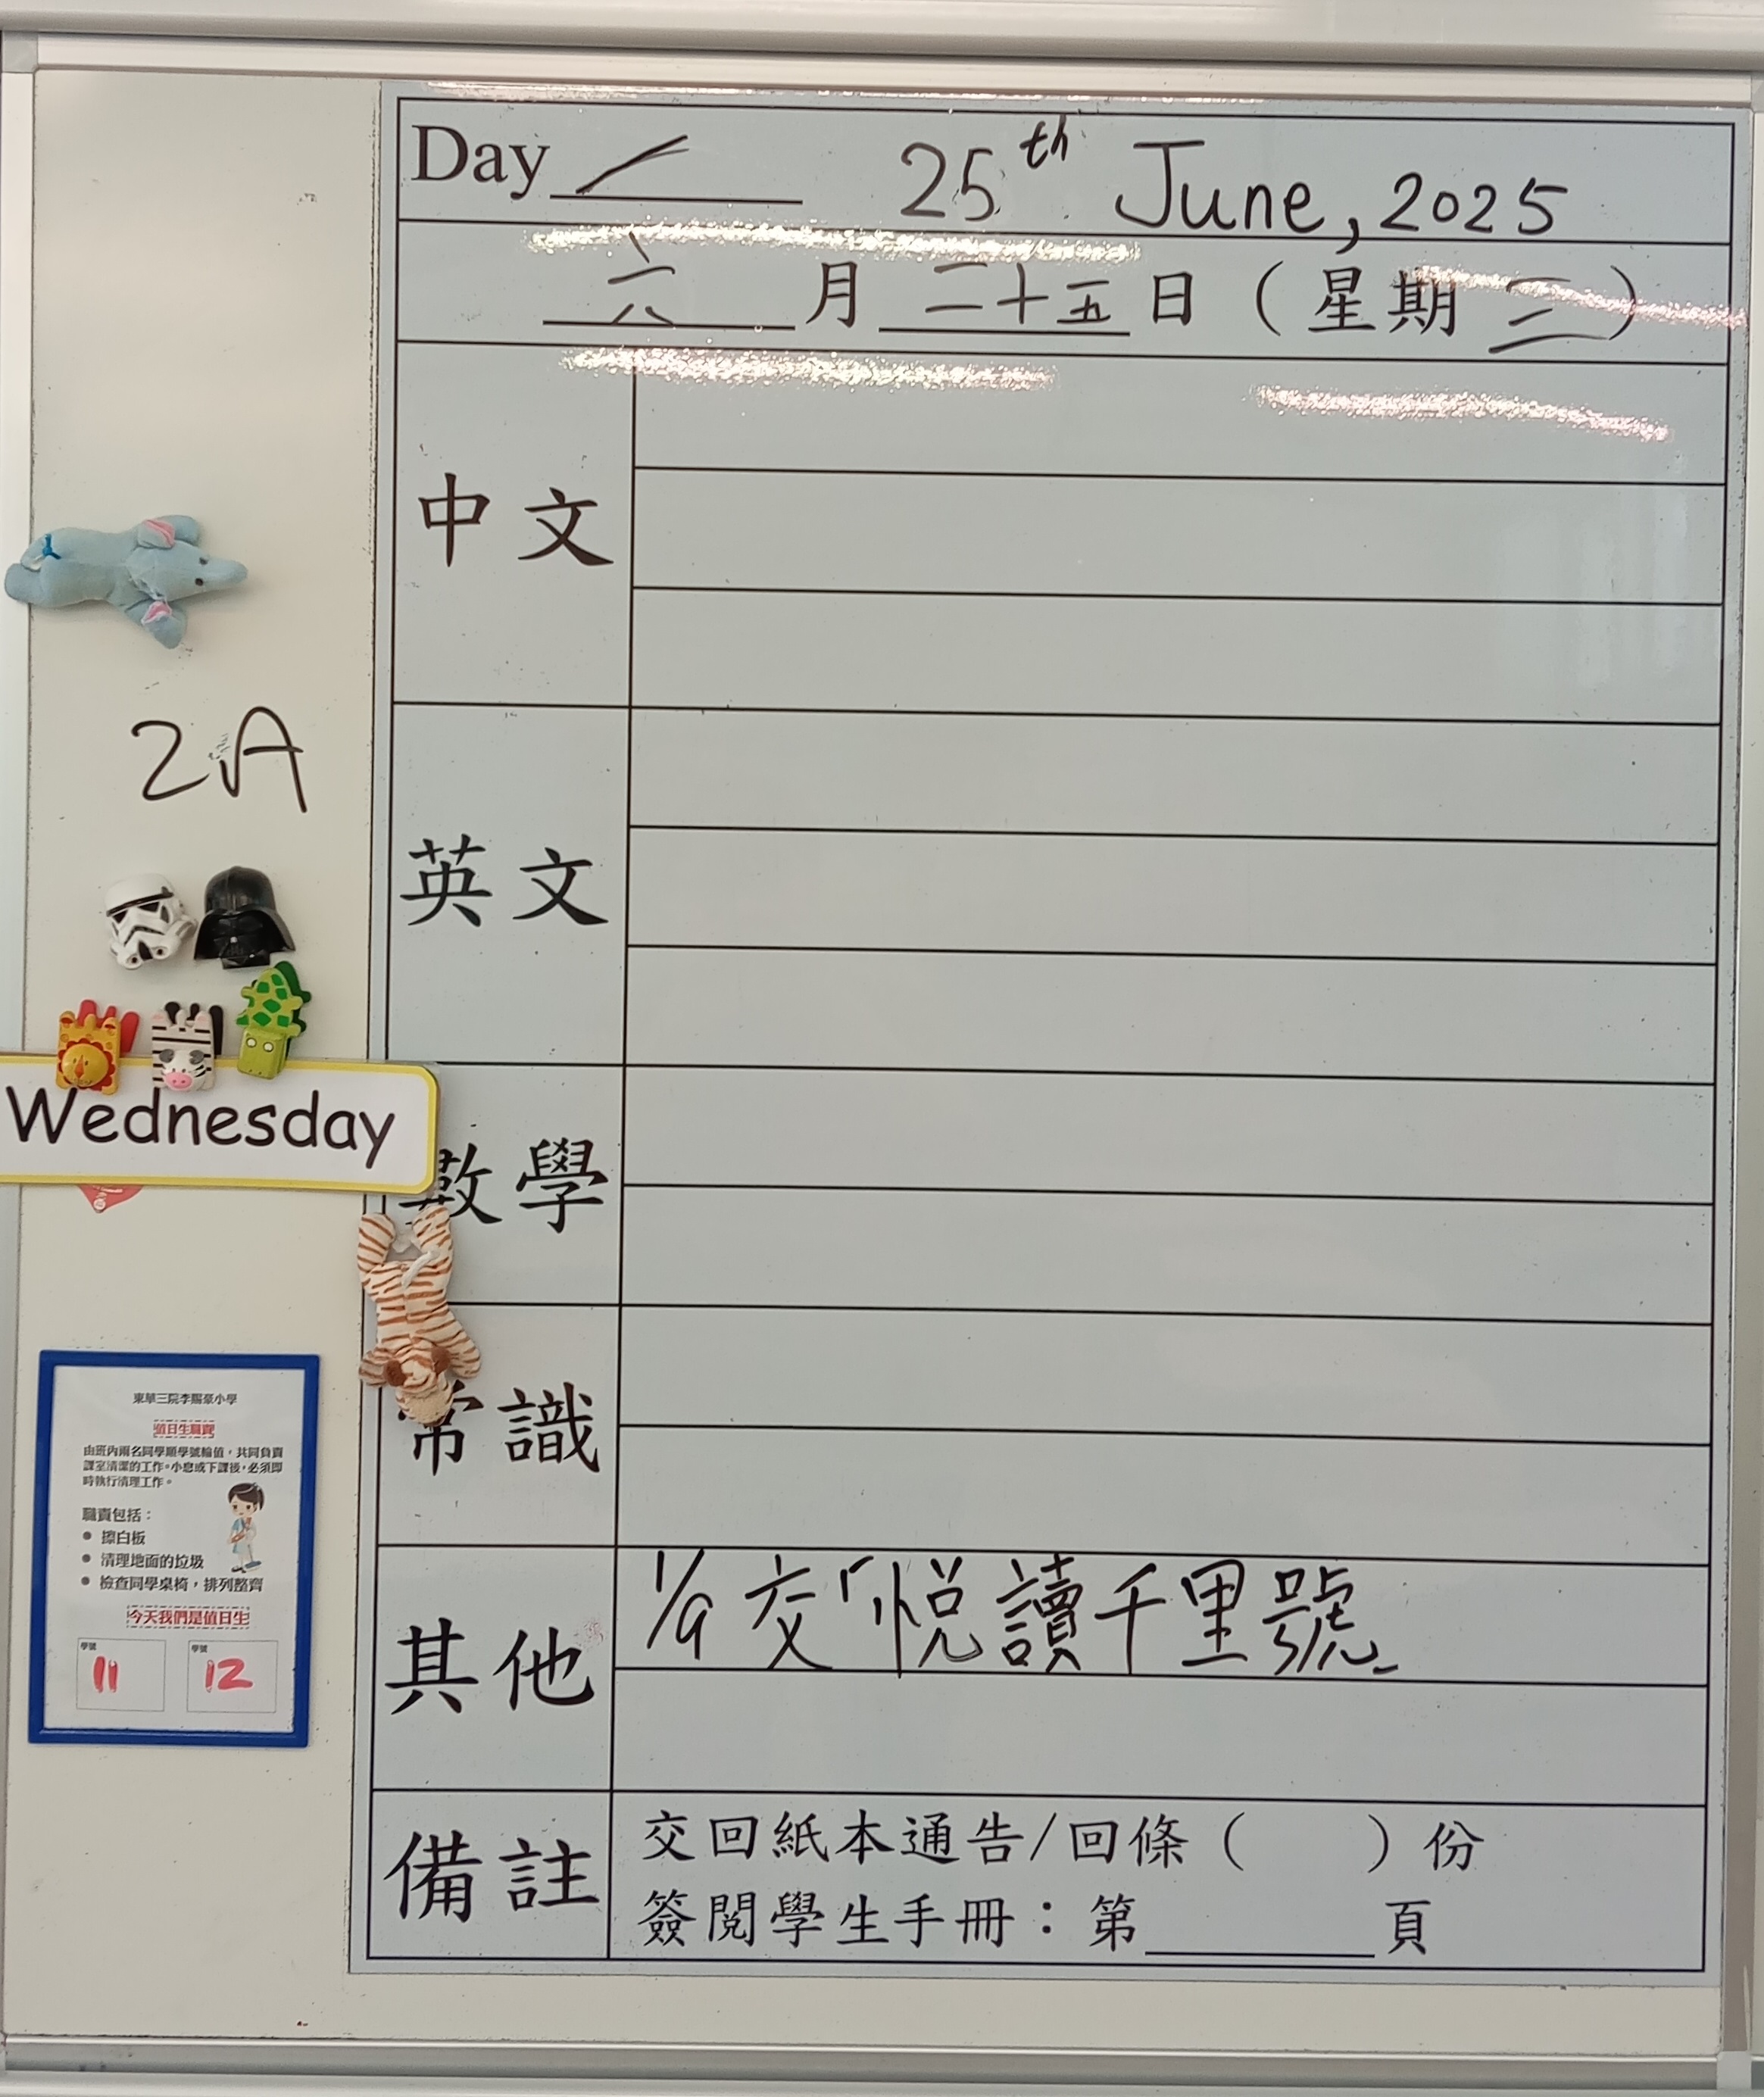 Day / 25th June, 2025
六月二十五日（星期三）
中文
英文
2A
Wednesday
數學
常識
其他 1/9 交「悅讀千里號」
備註 交回紙本通告/回條（ ）份
簽閱學生手冊：第______頁
東華三院李賜豪小學
值日生職責
由班內兩名同學順學號輪值，共同負責
課室清潔的工作。小息或下課後，必須即
時執行清理工作。
職責包括：
● 擦白板
● 清理地面的垃圾
● 檢查同學桌椅，排列整齊
今天我們是值日生
學號 學號
11 12